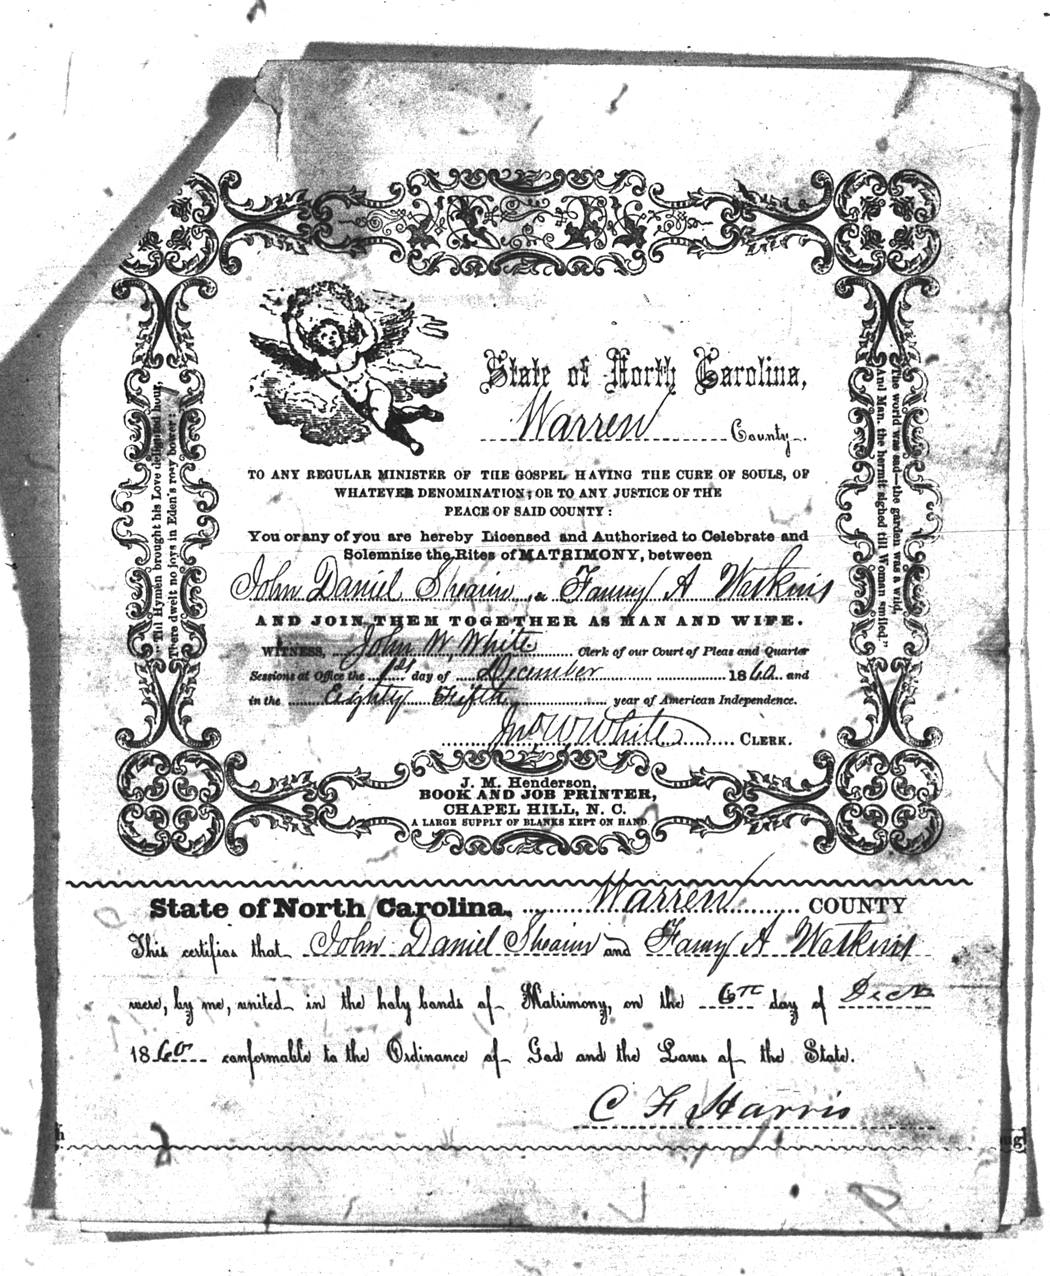 State of North Carolina,
Warren County.
TO ANY REGULAR MINISTER OF THE GOSPEL HAVING THE CURE OF SOULS, OF
WHATEVER DENOMINATION; OR TO ANY JUSTICE OF THE
PEACE OF SAID COUNTY:
You or any of you are hereby Licensed and Authorized to Celebrate and
Solemnize the Rites of MATRIMONY, between
John Daniel Shearin & Fanny A Watkins
AND JOIN THEM TOGETHER AS MAN AND WIFE.
WITNESS, John W. White Clerk of our Court of Pleas and Quarter
Sessions at Office the 1st day of December 1860 and
in the Eighty Fifth year of American Independence.
Jno W White CLERK.
"Till Hymen brought his Love delighted hour,
There dwelt no joys in Eden's rosy bower:
The world was sad—the garden was a wild,
And Man, the hermit sighed till Woman smiled."
J. M. Henderson,
BOOK AND JOB PRINTER,
CHAPEL HILL, N. C.
A LARGE SUPPLY OF BLANKS KEPT ON HAND.
State of North Carolina, Warren COUNTY
This certifies that John Daniel Shearin and Fanny A Watkins
were, by me, united in the holy bands of Matrimony, on the 6th day of Decr
1860 conformable to the Ordinance of God and the Laws of the State.
C F Harris